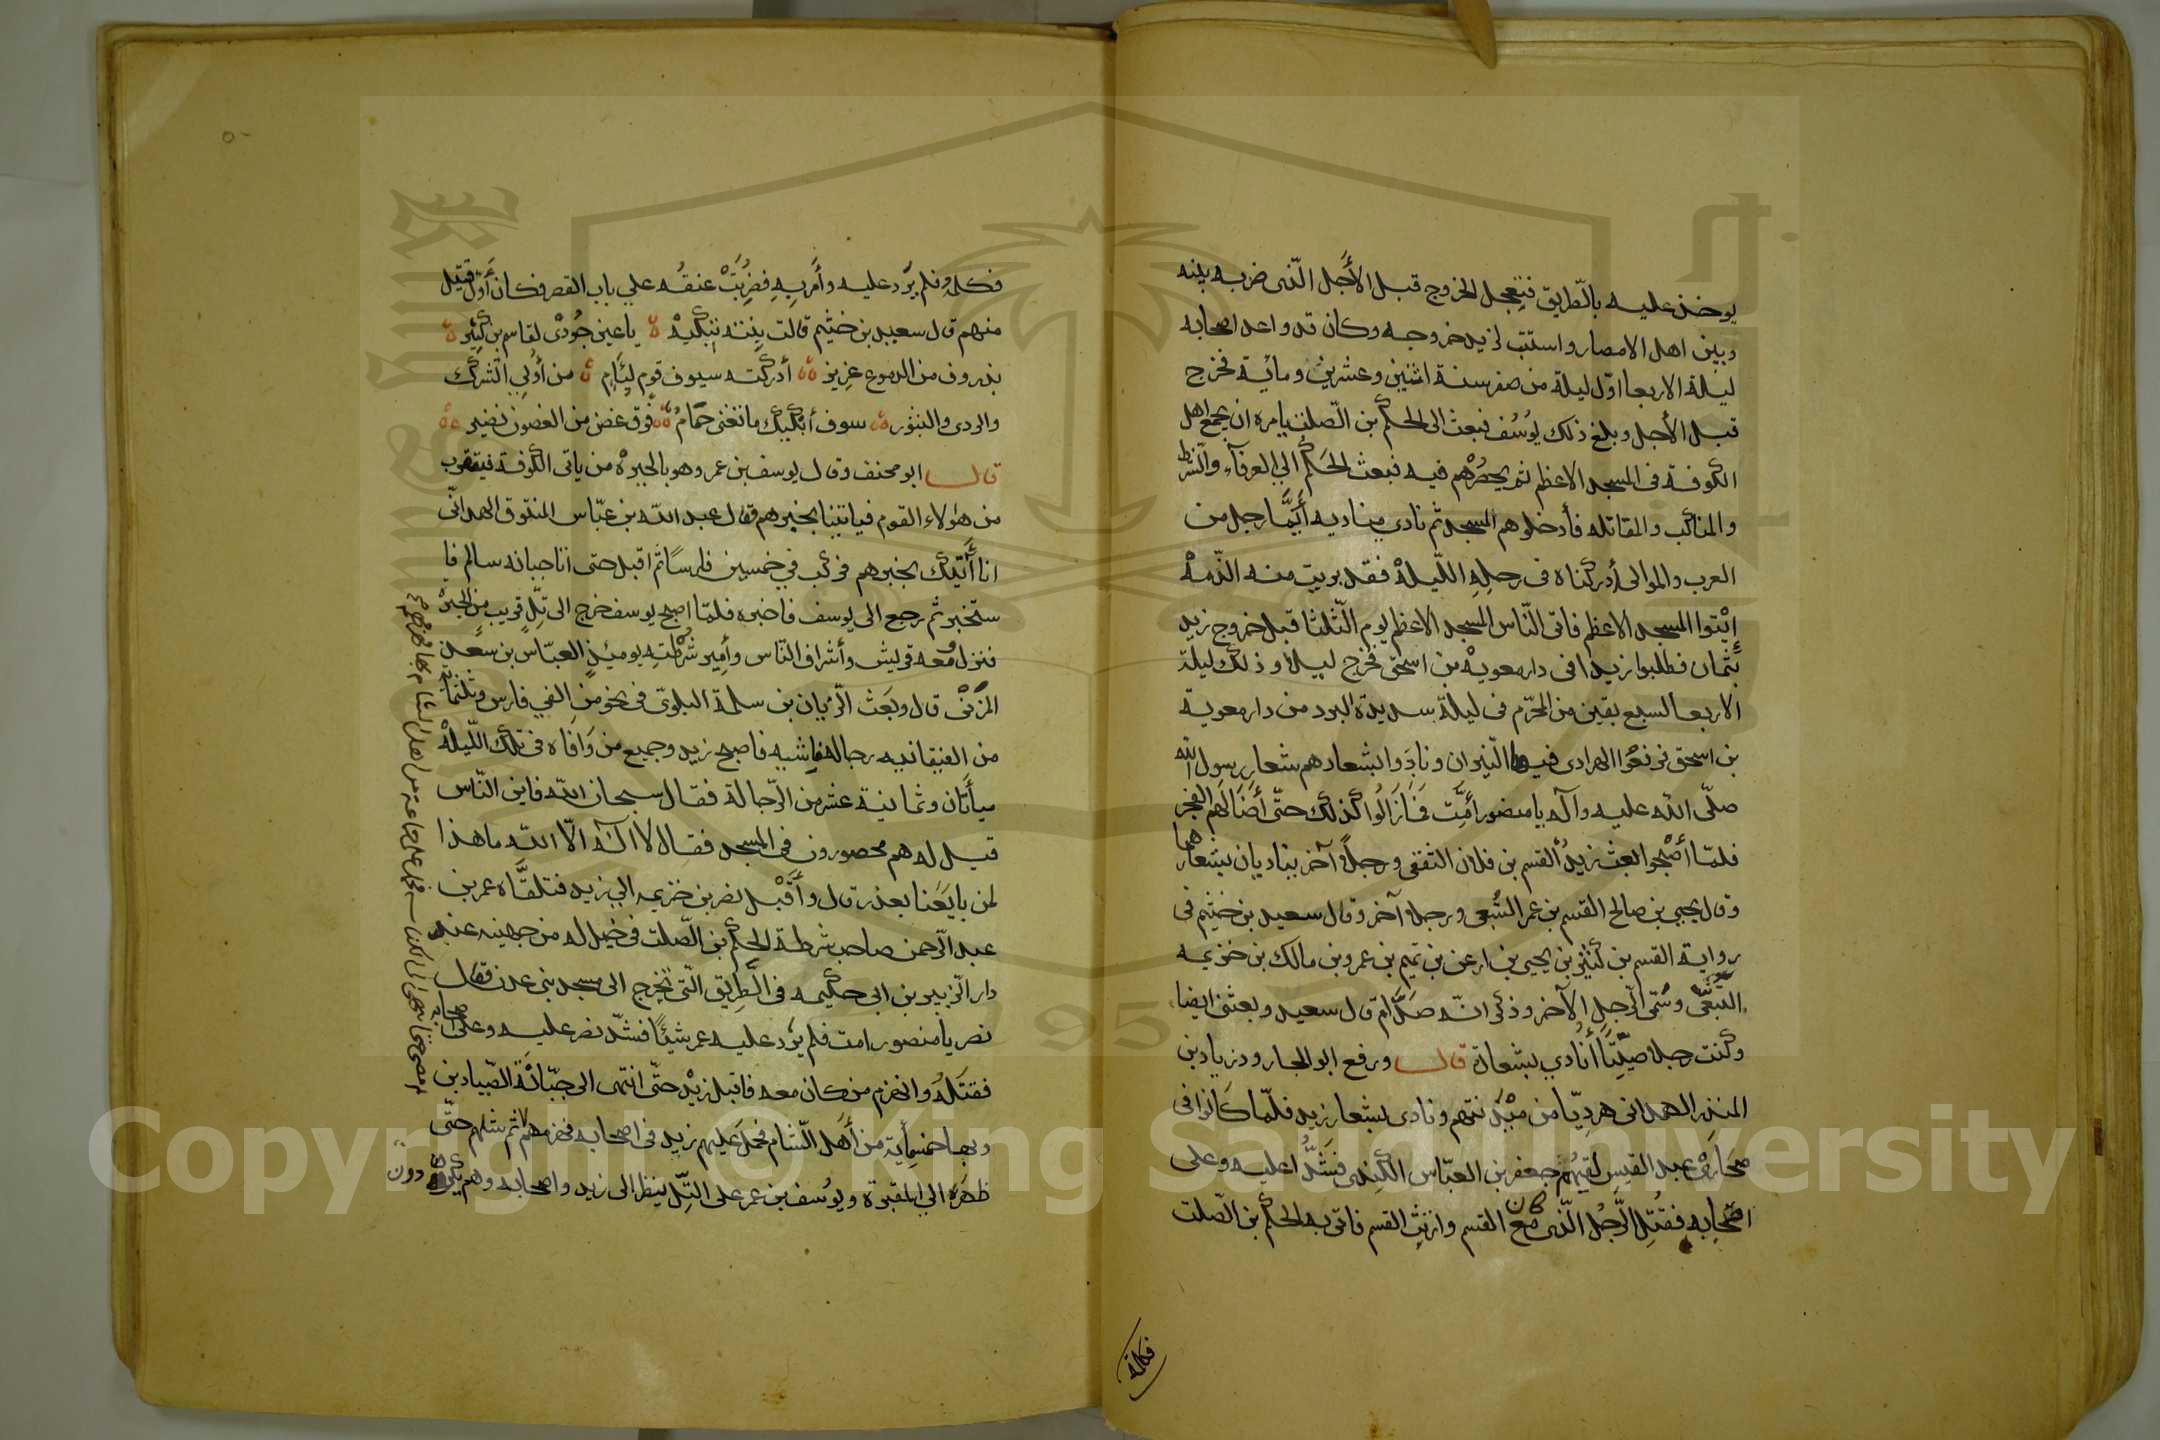 يوخذ عليه بالطريق فتعجل الخروج قبل الأجل الذى ضربه بينه
وبين اهل الامصار واستتب لزيد خروجه وكان قد واعد اصحابه
ليلة الاربعا اوّل ليلة من صفر سنة اثنين وعشرين ومائة فخرج
قبل الأجل وبلغ ذلك يوُسُف فبعث الى الحكم بن الصّلت يامره ان يجمع اهل
الكوفة فى المسجد الاعظم ثم يحصُرهم فيه فبعث الحَكم الى العرفآء والشرط
والمناكب والمقاتله فأدخلوهم المسجد ثم نادى مناديه أَيَّما رجل من
العرب والموالى أدركناه فى رحلِهِ اللّيلة فقد بريت منه الذّمة
إيْتوا المسجد الاعظم فاتى النّاس المسجد الاعظم يوم الثّلثا قبل خروج زيد
فطلبوا زيدا فى دار معوية بن اسحق فخرج ليلا وذلك ليلة
الاربعا لسبع بقين من المحرّم فى ليلة سديدة البرد من دار معوية
بن اسحق فرفعوا الهرادى فيها النّيران ونادَوا بشعارهم شعار رسول الله
صلّى الله عليه وآله يا منصور أَمِت فمَا زَالُوا كذلك حتّى أضَالَهم الفجر
فلمّا أصْبحوا بعث زيدُ القسم بن فلان التقفى ورجلاً آخر يناديان بشعارهما
وقال يحيى بن صالح القسم بن عمر التبعى ورجلا آخر وقال سعيد بن خثيم فى
رواية القسم بن كثير بن يحيى بن بن تميم بن عمرو بن مالك بن خزيمه
التبعى وسُمّى الرجل الآخر وذكر انّه صَدَّام قال سعيد وبعثنى ايضا
وكنت رجلا صيّتًا أُنادي بشعارة قال ورفع ابو الجارود زياد بن
المنذر الهمدانى هرديّا من ميْمَنتهم ونادى بشعار زيد فلمّا كَانوا فى
صحَارى عبد القيس لقيهُم جعفر بن العبّاس الكندى فشَدُّا عليه وعلى
اصْحابِه فقُتِل الرَّجُل الّذى كان مع القسم وارتثِ القسم فاتى به الحكم بن الصّلت
فكلمة
فكلمه فلم يَرد عليه وأَمر بِهِ فضُرِبَتْ عنقُه علي باب القصر فكان أَوّل قتيل
منهم قال سعيد بن خثيم قالت بِنته تبكيهْ يا عين جُودى لقاسم بن كثير
بذروف من الدموع غزير أدركته سيوف قوم لِئَامٍ من أولِي الشرك
والردى والثبور سوف أبْكيك ما تغنى حَمَامُ فوق غض من الغصون نضير
قال ابو مخنف وقال يوسف بن عمر وهو بالحيرة من ياتى الكوفة فيقرب
من هؤلاء القوم فياتينا بخبرهم فقال عبد الله بن عبّاس المنتوق الهمدانّى
انا أَتَيك بخبرهم فركب فى خمسين فارسًا ثم اقبل حتى انا جبانة سالم فا
ستخبر ثم رجع الى يوسف فاخبره فلمّا اصبح يوسف خرج الى تلّ قريب من الحيرة
فنزل معُه قريش وأشراف النّاس وأمِير شُرطتهِ يومئذٍ العبّاس بن سعد
المزنى قال وبَعَث الرّيان بن سلمة البلوى فى نحو من الفي فارس وثلثمائة
من القيقانيه رجالة ناشبه فاصبح زيد وجميع من وَافَاه فى تلك اللّيلة
مِيأتان وثمانية عشر من الرّجالة فقال سبحان الله فاين النّاس
قيل له هم محصورون فى المسجد فقال لا اله الّا الله ما هذا
لمن بايَعَنا بعذر قال وأَقْبل نصر بن خزيمه الي زيد فتلقّاه عمر بن
عبد الرّحمن صاحب شرطة الحكم بن الصّلت فى خيل له من جهينه عند
دار الزبير بن ابى حكيمه فى الطِّرِيق الّتى تخرج الى مسجد بنى عدى فقال
نصر يا منصور امت فلم يرُد عليه عمر شيئًا فشدّ نصر عليه وعلى اصحابه
فقتَلهُ وانهزم من كان معه فاقبل زيدْ حتّى انتهى الى جبّانَة الصّيادين
وبها خمسمِأية من أَهْل الشّام فحمل عَليهم زيد فى اصحابه فهزمهم ثم شلهم حتّى
ظهرَه الي المقبرة ويوُسُف بن عمر على التّلِّ ينظر الى زيد واصحابه وهم يكردون
ثم مضى حتى انتهى الى الكناسة فحمل على جماعة من اهل الشام بها فهزمهم